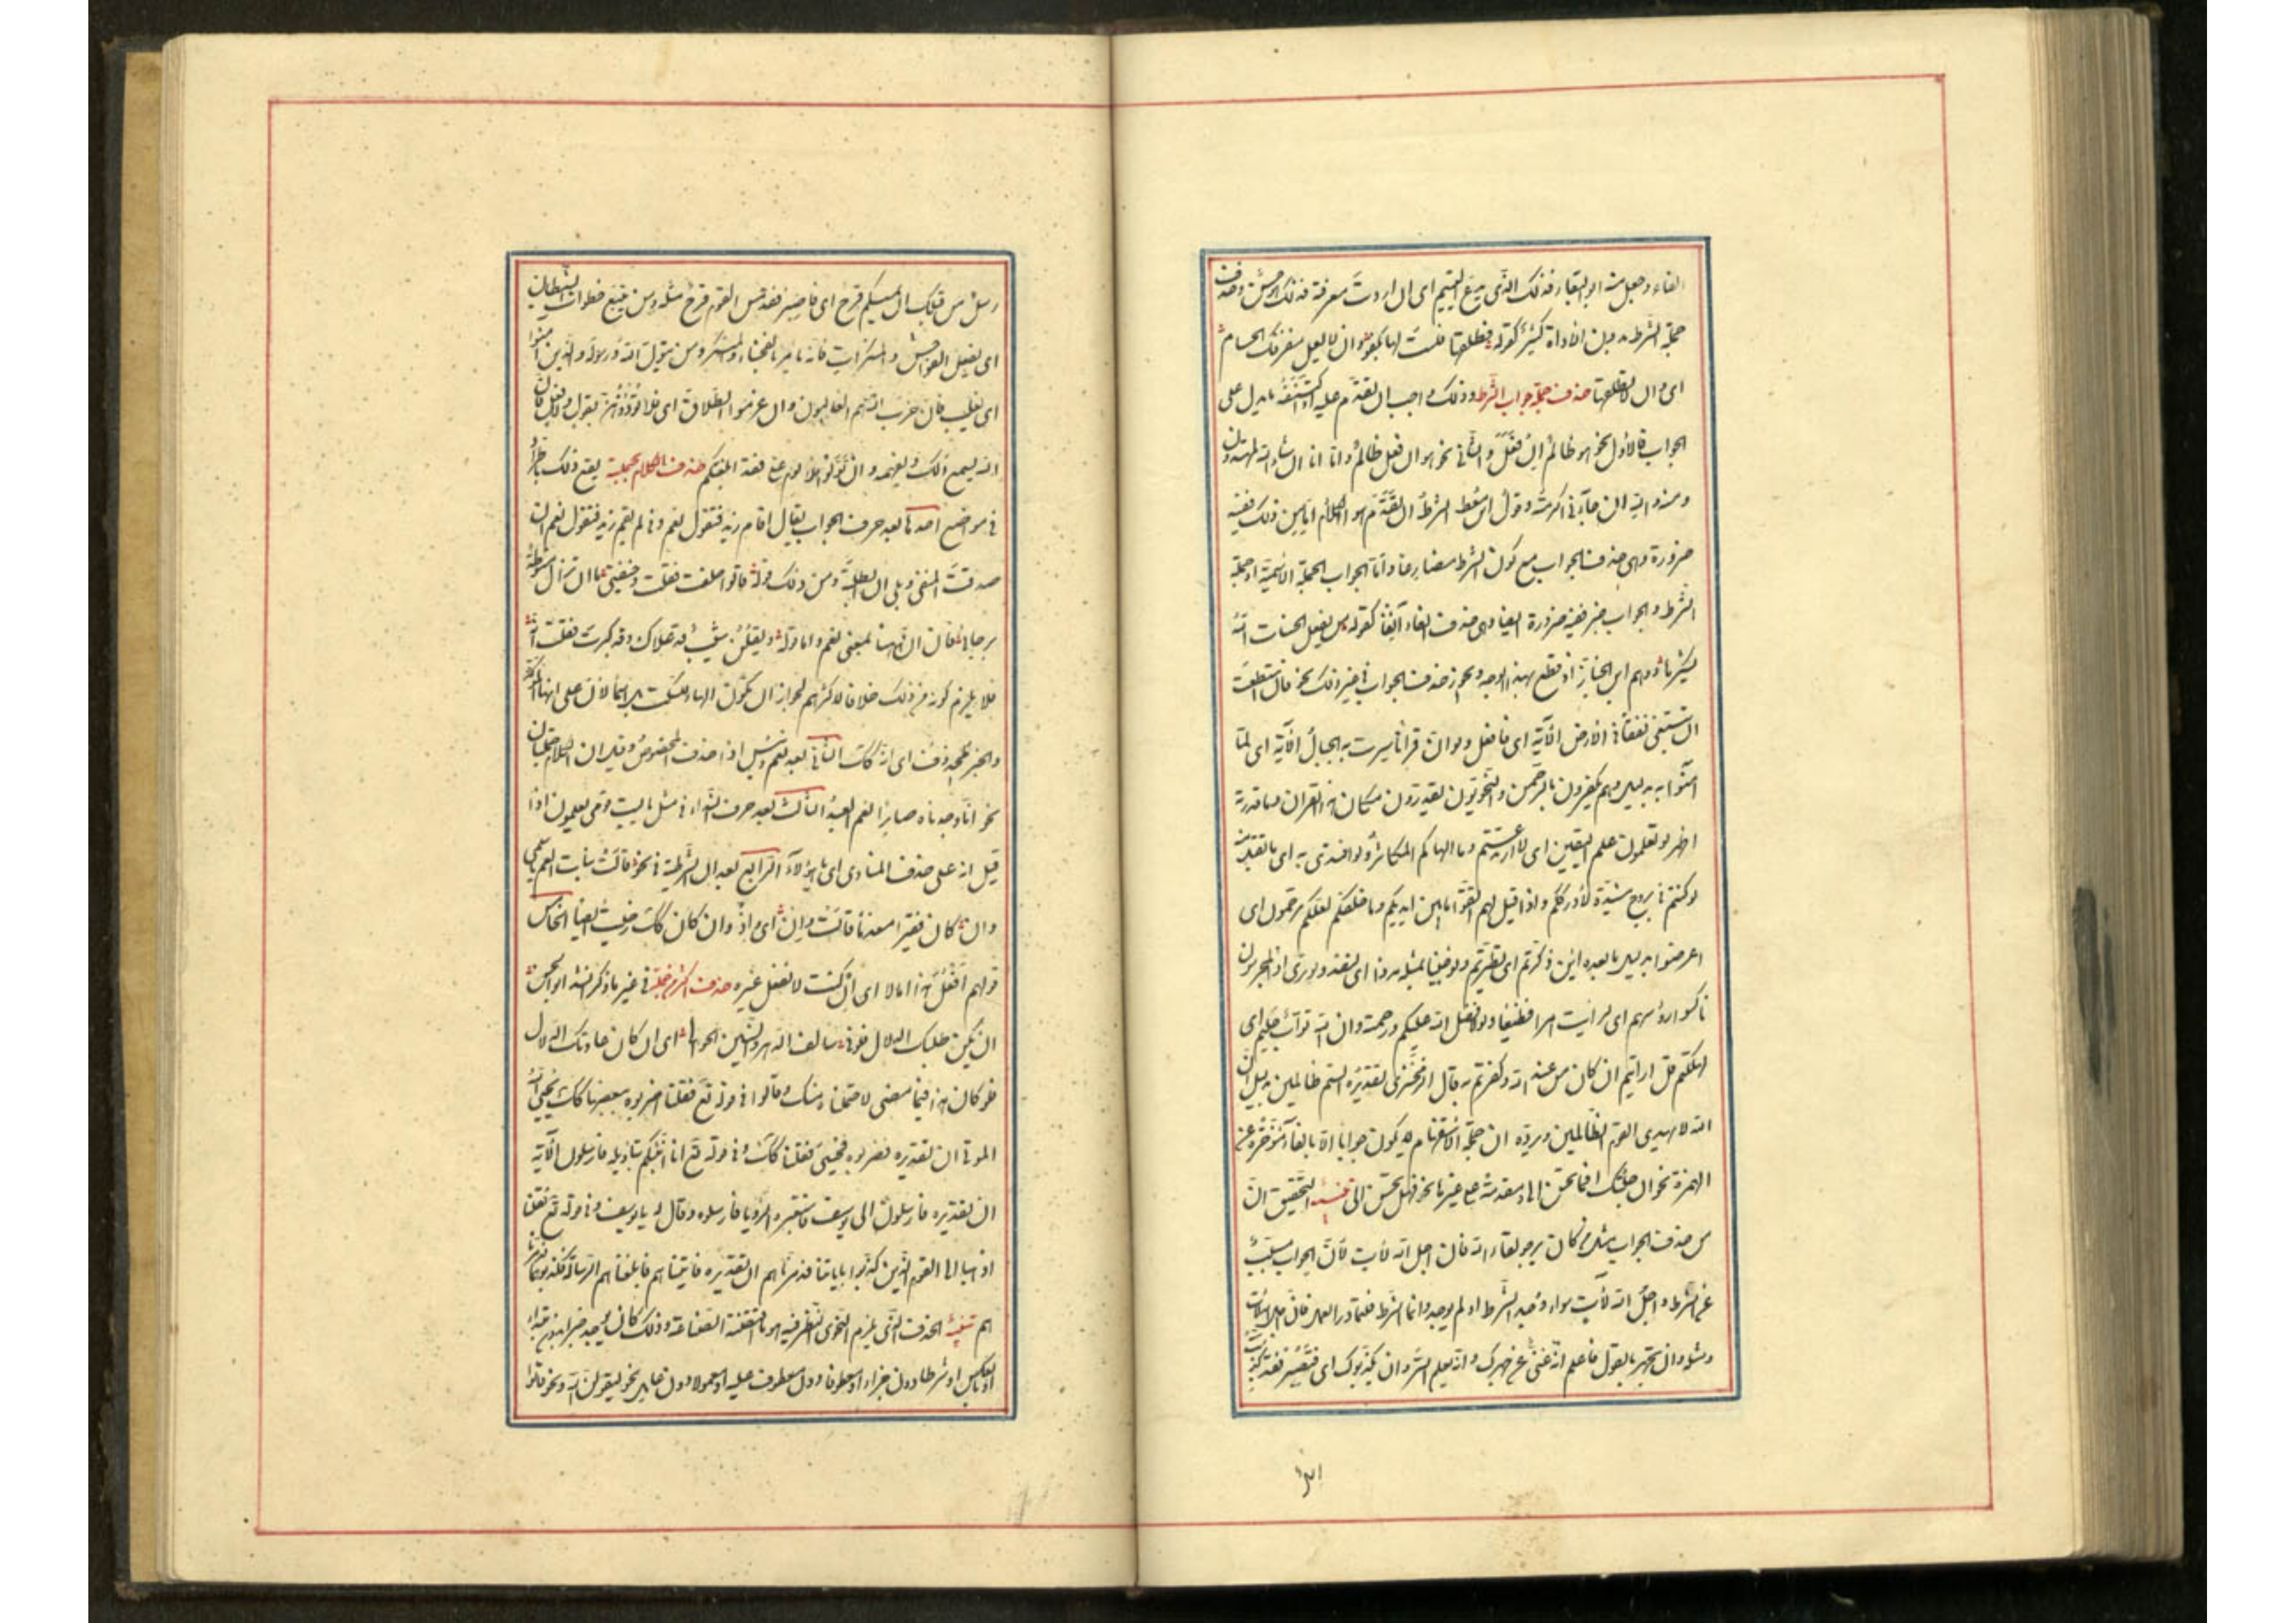 الفاء وجعل منه ابو البقاء فذلك الذى يدع اليتيم اى ان اردت معرفته فذلك وهو حسن وحذف
جملة الشرط بدون الاداة كثير كقوله فطلقها فلست لها بكفو وان لا يعل مفرقك الحسام
اى وان لا تطلقها حذف جملة جواب الشرط وذلك واجب ان تقدم عليه او اكتنفه ما يدل على
الجواب فالاول نحو هو ظالم ان فعل والثانى نحو هو ان فعل ظالم وانا ان شاء الله لمهتدون
ومنه والله ان جاءنى اكرمته وقول ابن معط الشرط ان تقدم هو الكلام اما من ذلك ففيه
ضرورة وهى حذف الجواب مع كون الشرط مضارعا واما الجواب الجملة الاسمية او جملة
الشرط والجواب خبر ففيه ضرورة ايضا وهى حذف الفاء ايضا كقوله من يفعل الحسنات الله
يشكرها ووهم ابن الخباز اذ قطع بهذا الوجه ويجوز حذف الجواب فى غير ذلك نحو فان استطعت
ان تبتغى نفقا فى الارض الآية اى فافعل ولو ان قرآنا سيرت به الجبال الآية اى لما
آمنوا به بدليل وهم يكفرون بالرحمن والنحويون يقدرون لكان هذا القرآن وما قدرته
اظهر لو تعلمون علم اليقين اى لارتدعتم وما الهاكم التكاثر ولو افتدى به اى ما تقبل منه
لو كنتم فى بروج مشيدة لادرككم واذا قيل لهم اتقوا ما بين ايديكم وما خلفكم لعلكم ترحمون اى
اعرضوا بدليل ما بعده ائن ذكرتم اى تطيرتم ولو جئنا بمثله مددا اى لنفد ولو ترى اذ المجرمون
ناكسوا رؤسهم اى لرايت امرا فظيعا ولولا فضل الله عليكم ورحمته وان الله تواب حكيم اى
لهلكتم قل ارايتم ان كان من عند الله وكفرتم به قال الزمخشرى تقديره الستم ظالمين بدليل ان
الله لا يهدى القوم الظالمين ويرده ان جملة الاستفهام لا يكون جوابا الا بالفاء مؤخرة عن
الهمزة نحو ان جئتك افما تحسن الى او مقدمة على غيرها نحو فهل تحسن الى تنبيه التحقيق ان
من حذف الجواب مثل من كان يرجو لقاء الله فان اجل الله لآت لان الجواب مسبب
عن الشرط واجل الله لآت سواء وجد الشرط او لم يوجد وانما الشرط فليبادر العمل فان
ومثله وان تجهر بالقول فاعلم انه غنى عن جهرك فانه يعلم السر وان يكذبوك اى فتصبر فقد كذبت
رسل من قبلك ان يمسسكم قرح اى فاصبر فقد مس القوم قرح مثله ومن يتبع خطوات الشيطان
اى يفعل الفواحش والمنكرات فانه يامر بالفحشاء والمنكر ومن يتول الله ورسوله والذين آمنوا
اى يغلب فان حزب الله هم الغالبون وان عزموا الطلاق اى فلا تؤذوهن بقول ولا فعل فان
الله يسمع ذلك ويعلمه وان تولوا فلا لوم على فقد ابلغتكم حذف الكلام بجملته يقع ذلك باطراد
فى مواضع احدها بعد حرف الجواب يقال اقام زيد فتقول نعم والم يقم زيد فتقول نعم ان
صدقت النفى وبلى ان ابطلته ومن ذلك قوله قالوا اخفت فقلت وخيفتى ما ان تزال منوطة
برجائى فان ان ههنا بمعنى نعم واما قوله ويقلن شيب قد علاك وقد كبرت فقلت انه
فلا يلزم كونه من ذلك خلافا لاكثرهم لجواز ان تكون الهاء للسكت بل اسما لان على انها المؤكدة
والخبر محذوف اى انه كذلك الثانى بعد نعم وبئس اذا حذف المخصوص وقيل ان الكلام جملتان
نحو انا وجدناه صابرا نعم العبد الثالث بعد حرف النداء فى مثل يا ليت قومى يعلمون اذا
قيل انه على حذف المنادى اى يا هؤلاء الرابع بعد ان الشرطية فى نحو قالت بنات العم يا سلمى
وان كان فقيرا معدما قالت وان اى واذ وان كان كذلك رضيت ايضا الخامس
قولهم افعل هذا اما لا اى ان كنت لا تفعل غيره حذف اكثر من جملة فى غير ما ذكر انشد ابو الحسن
ان يكن طبك الدلال فلو فى سالف الدهر والسنين الخوالى اى ان كان عادتك الدلال
فلو كان هذا فيما مضى لاحتملناه منك وقالوا فى قوله تع فقلنا اضربوه ببعضها كذلك يحيى الله
الموتى ان تقديره فضربوه فحيى فقلنا كذلك وفى قوله تع انا انبئكم بتاويله فارسلون الآية
ان تقديره فارسلون الى يوسف لاستعبره الرؤيا فارسلوه وقال له يا يوسف وفى قوله تع فقلنا
اذهبا الى القوم الذين كذبوا باياتنا فدمرناهم ان تقديره فاتياهم فابلغاهم الرسالة فكذبوهما فدمرنا
هم تنبيه الحذف الذى يلزم النحوى النظر فيه هو ما اقتضته الصناعة وذلك كان يجد خبرا بدون مبتداء
او بالعكس او شرطا بدون جزاء او معطوفا بدون معطوف عليه او معمولا بدون عامل نحو ليقولن الله ونحو قالوا